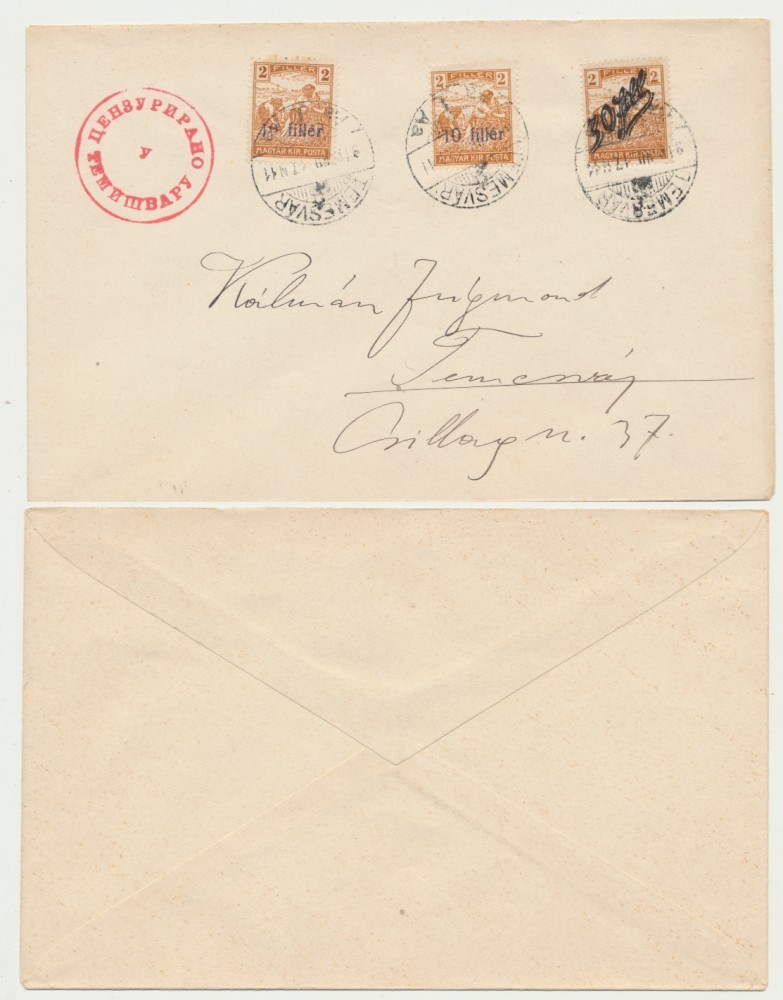 ЦЕНЗУРИРАНО
У
ТЕМИШВАРУ
2 FILLÉR 2
10 fillér
MAGYAR KIR. POSTA
2 FILLÉR 2
10 fillér
MAGYAR KIR. POSTA
2 FILLÉR 2
30 fill
MAGYAR KIR. POSTA
TEMESVÁR
TEMESVÁR
TEMESVÁR
Kálmán Zsigmond
Temesvár
Csillag u. 37.